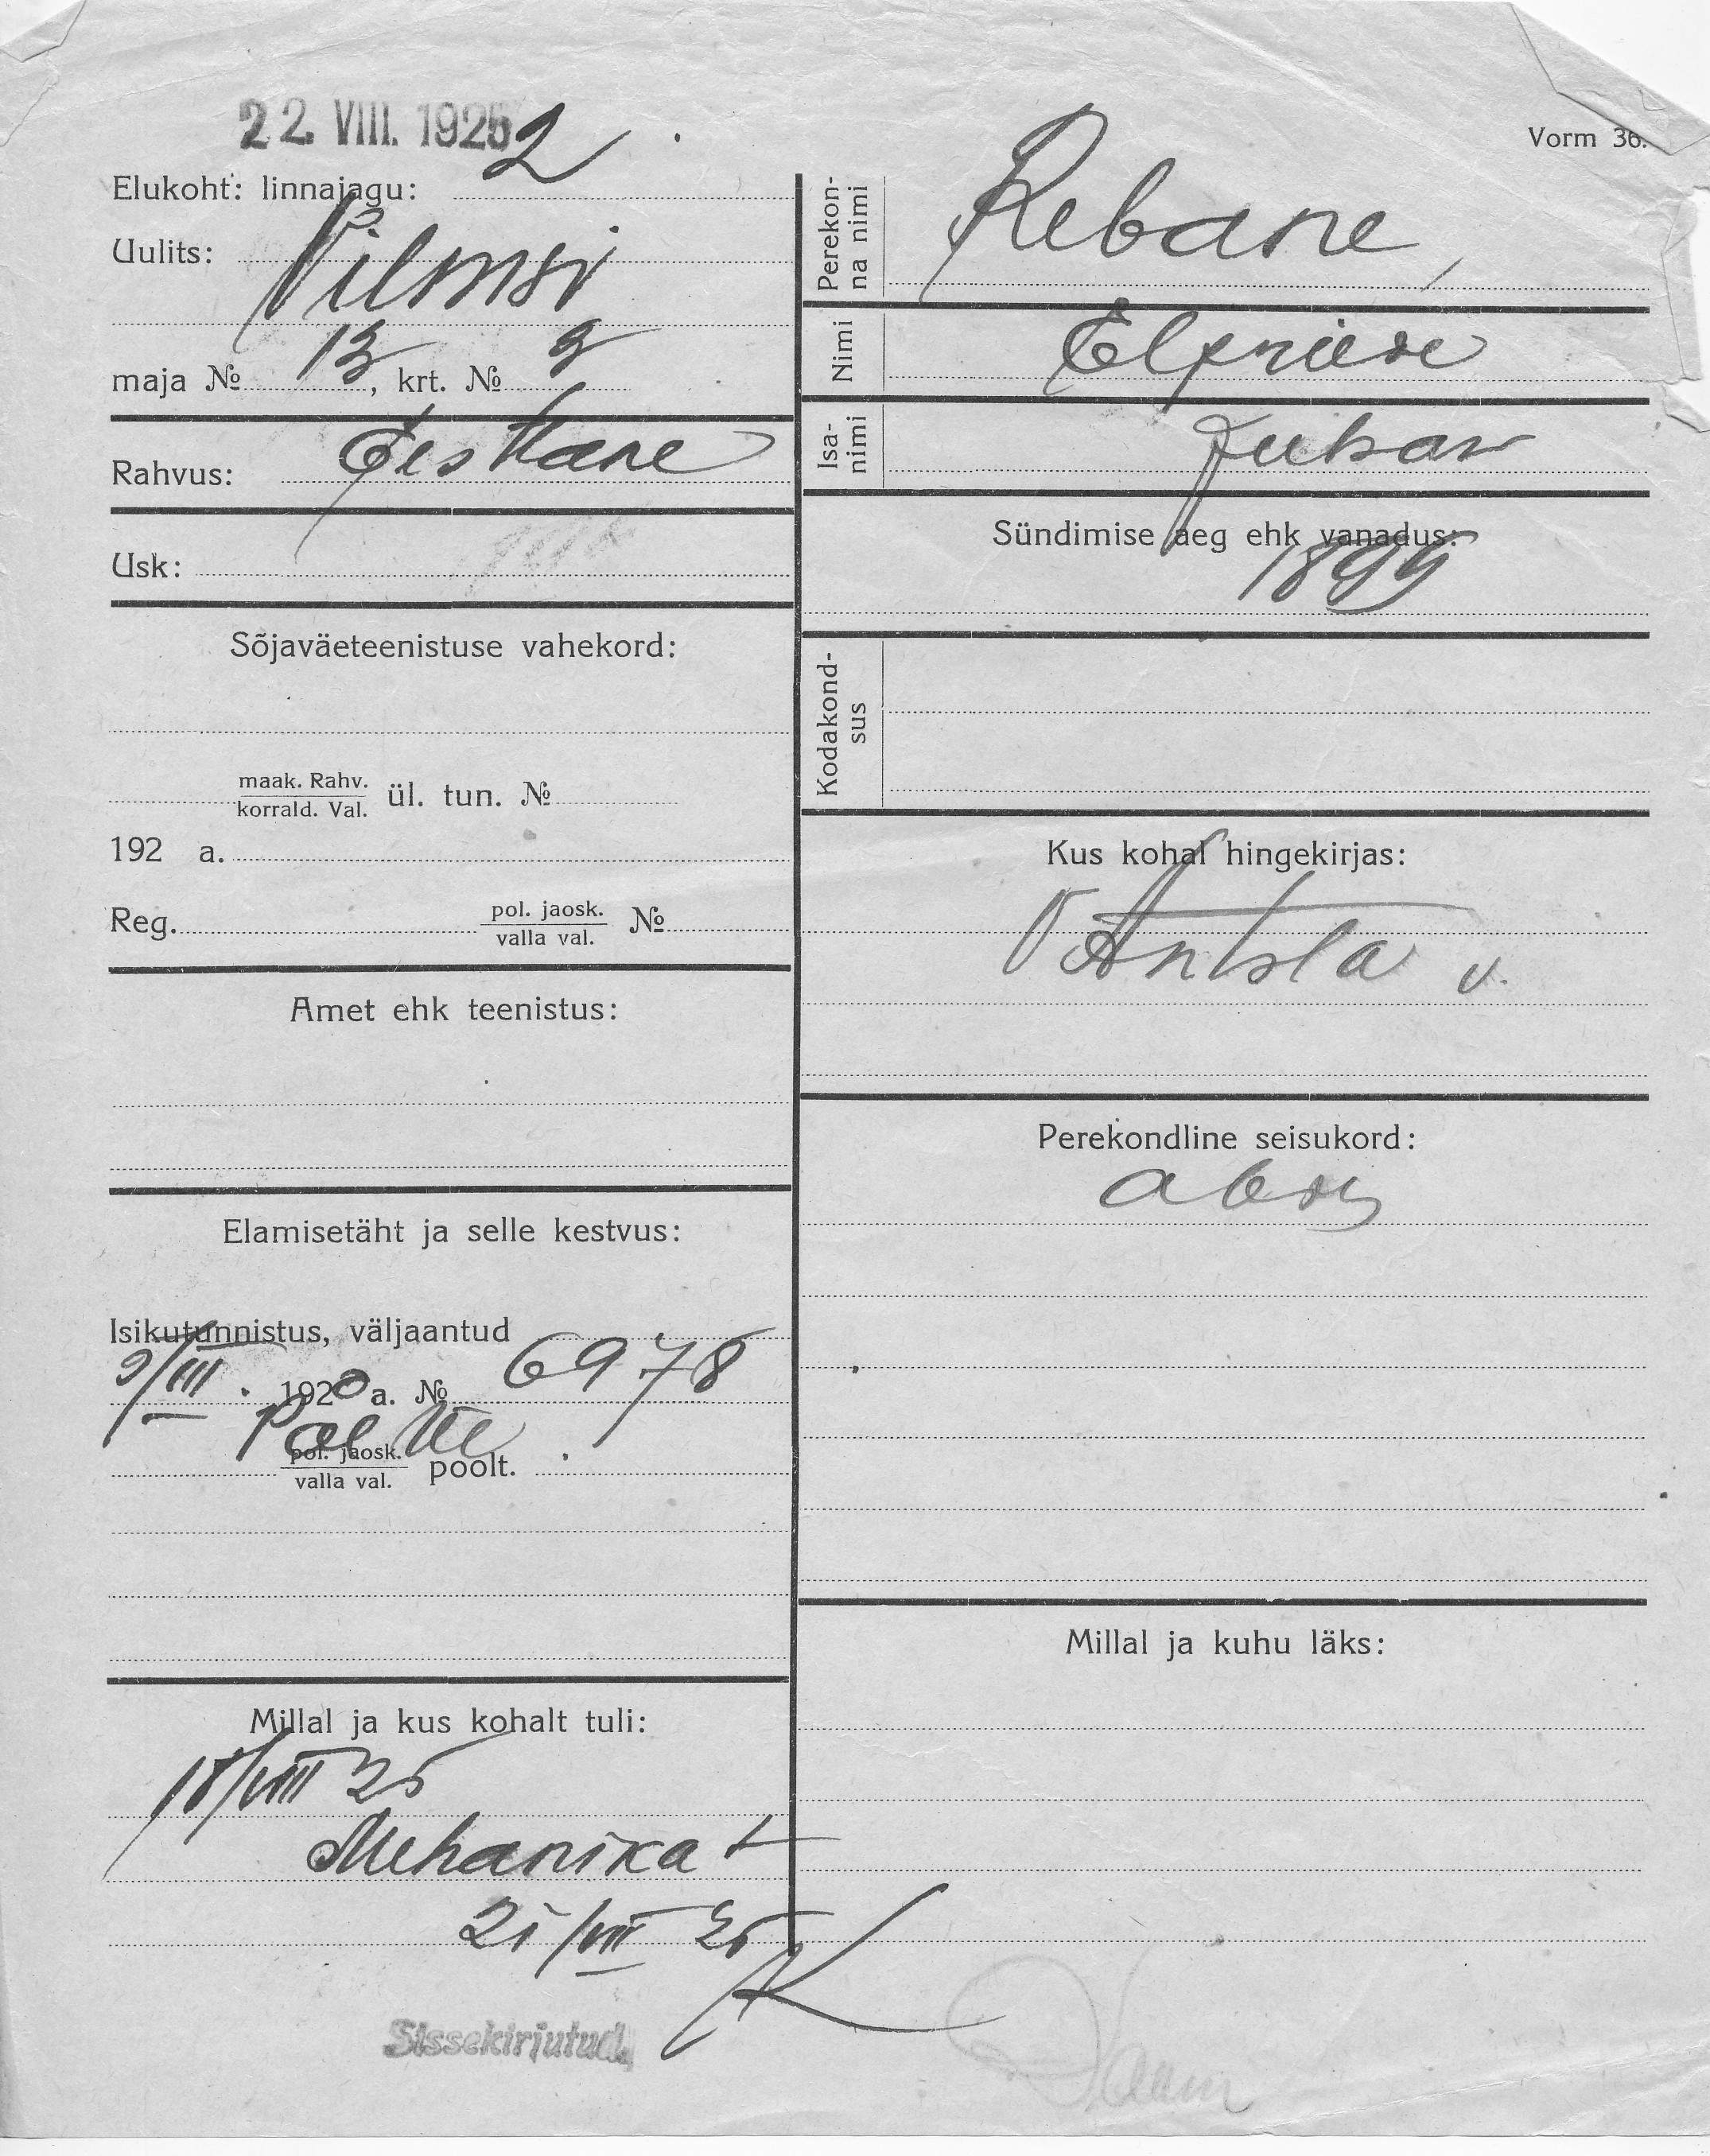 22. VIII. 1925
Vorm 36.
Elukoht: linnajagu: 2
Uulits: Vilmsi
maja № 13, krt. № 9
Rahvus: Eestlane
Usk:
Sõjaväeteenistuse vahekord:
maak. Rahv.
korrald. Val. ül. tun. №
192 a.
Reg. pol. jaosk.
valla val. №
Amet ehk teenistus:
Elamisetäht ja selle kestvus:
Isikutunnistus, väljaantud
1920 a. № 6978
pol. jaosk.
valla val. poolt.
Millal ja kus kohalt tuli:
18/VIII 25
Mehanika t
21/VIII 25
Sissekirjutud.
Perekon-
na nimi Rebane,
Nimi Elfriede
Isa-
nimi Juhan
Sündimise aeg ehk vanadus:
1899
Kodakond-
sus
Kus kohal hingekirjas:
V Antsla v.
Perekondline seisukord:
abin
Millal ja kuhu läks: